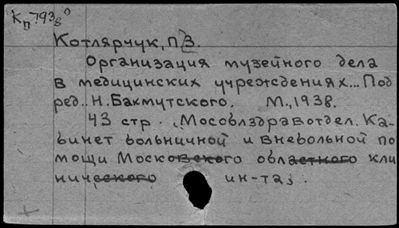 Кп 7938⁰
Котлярчук, П.З.
Организация музейного дела
в медицинских учреждениях... Под
ред. Н. Бахмутского. М., 1938.
43 стр. (Мособлздравотдел. Ка-
бинет больничной и внебольной по
мощи Московского областного кли
нического ин-та).